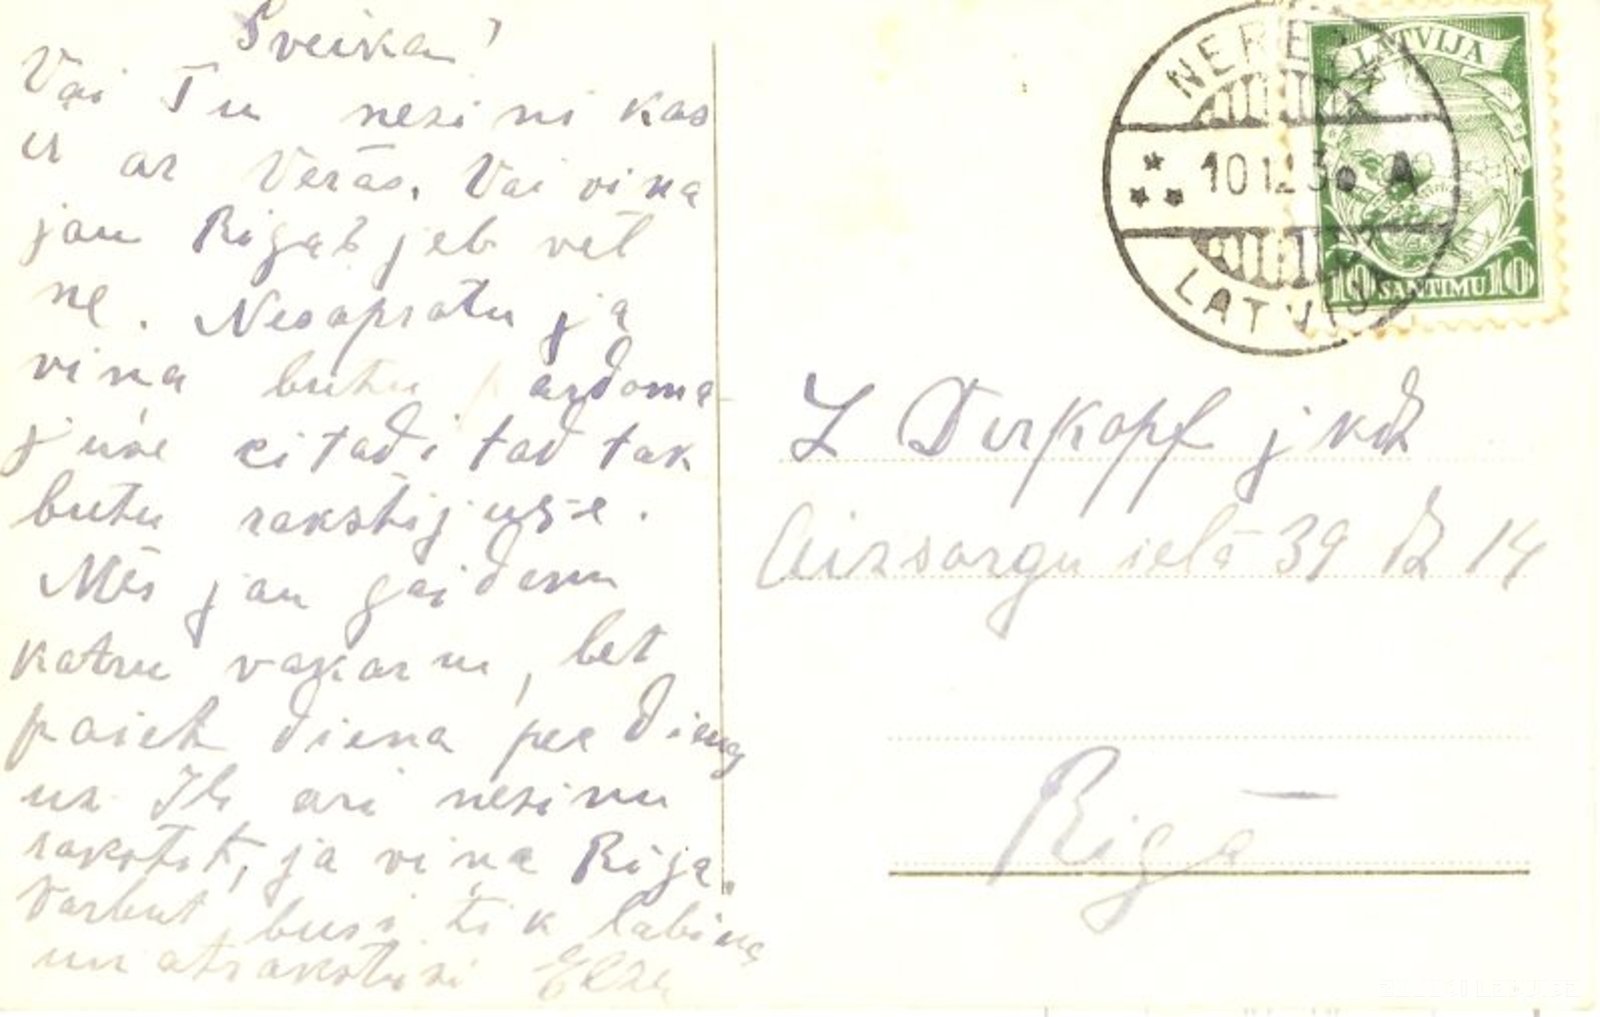 Sveika!
Vai Tu nezini kas
ir ar Veras. Vai vina
jau Rigaš jeb vel
ne. Nesapratu ja
vina butu pardoma
juse citadi tad tak
butu rakstijuse.
Mēs jau gaidam
katru vakaru, bet
paiet diena pec dienas
un Jk ari nezinu
rakstit, ja vina Riga.
Varbut busi tik labina
un atrakstisi Elza
NERETA
10 12 36 A
LATVIJA
LATVIJA
10 SANTIMU 10
Z Dirkopf jkdz
Aizsargu ielā 39 dz 14
Rigā